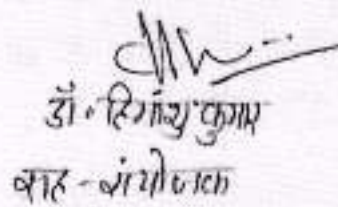 डॉ. हिमांशु कुमार
सह-संयोजक